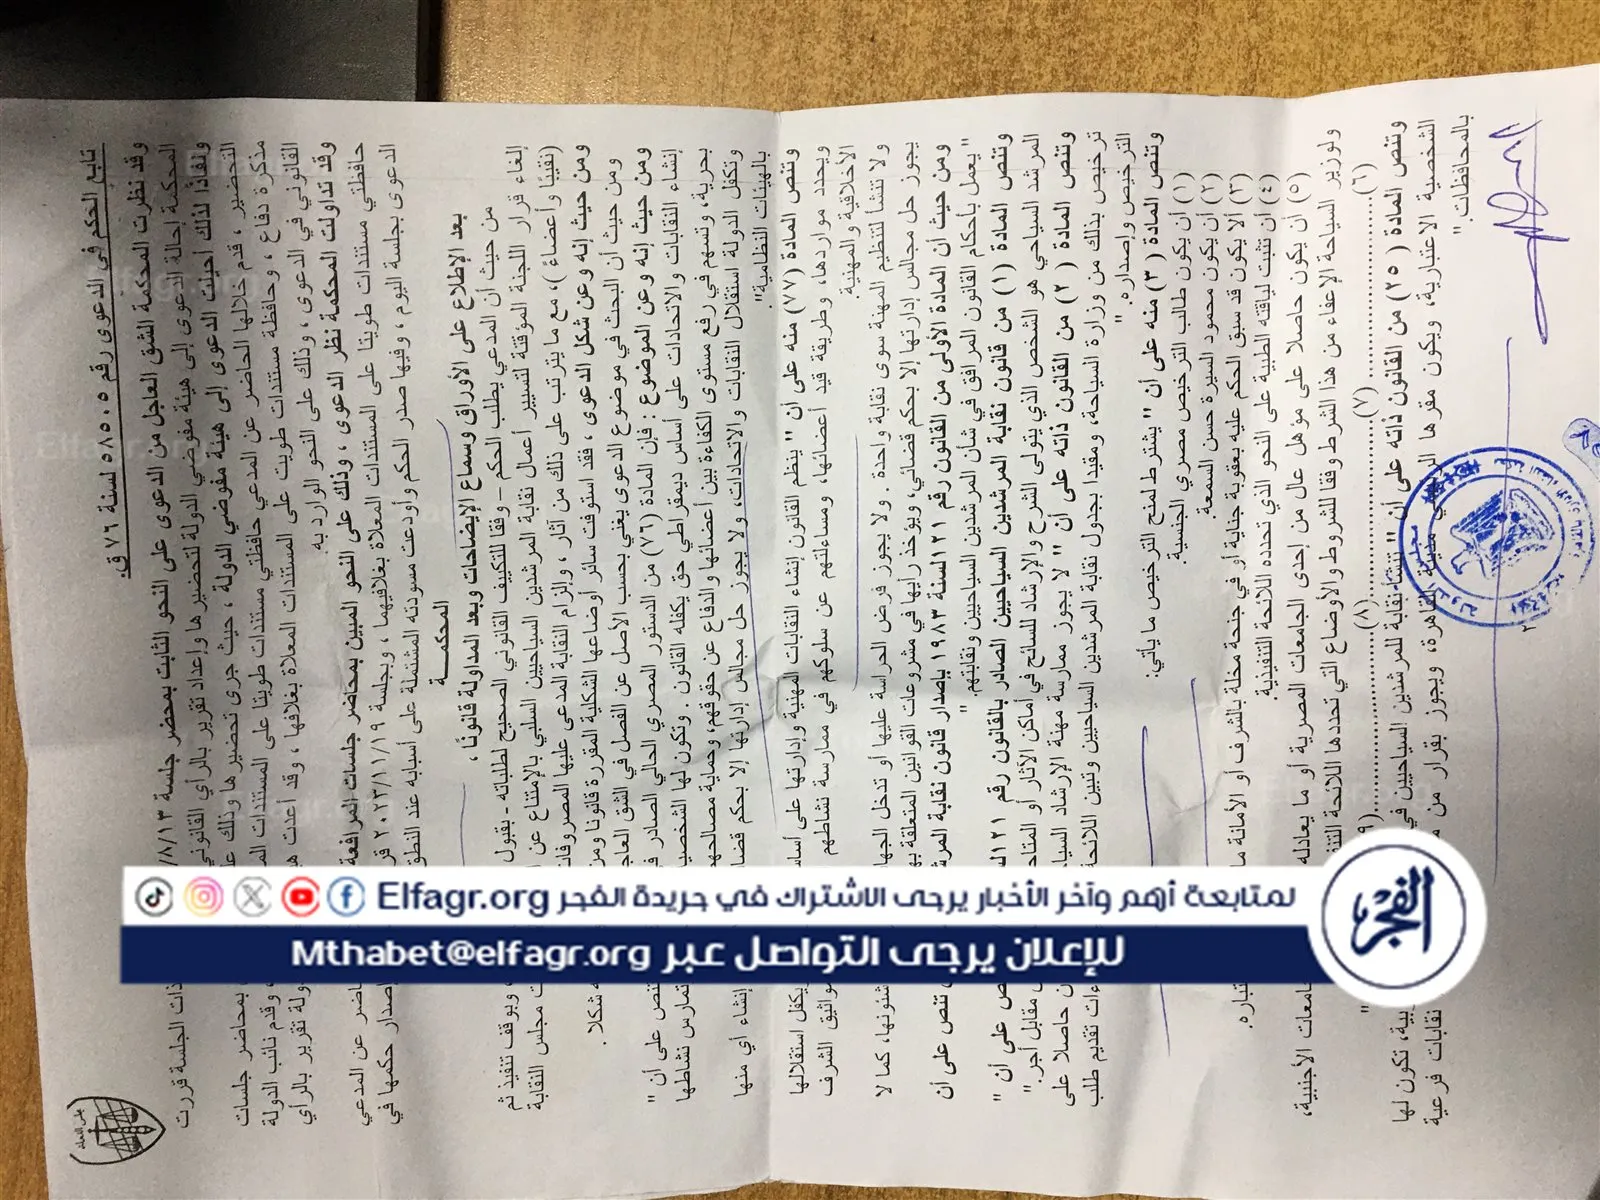 تابع الحكم في الدعوى رقم ٥٨٥٠٥ لسنة ٧٦ ق.
وقد نظرت المحكمة الشق العاجل من الدعوى على النحو الثابت بمحضر جلسة ذات الجلسة قررت
المحكمة إحالة الدعوى إلى هيئة مفوضي الدولة لتحضيرها وإعداد تقرير بالرأي القانوني
ونفاذًا لذلك أحيلت الدعوى إلى هيئة مفوضي الدولة ، حيث جرى تحضيرها وذلك بمحاضر جلسات
التحضير ، قدم خلالها الحاضر عن المدعي حافظتي مستندات طويتا على المستندات وقدم نائب الدولة
مذكرة دفاع ، وحافظة مستندات طويت على المستندات المعلاة بغلافها ، وقد أعدت تقرير بالرأي
القانوني في الدعوى ، وذلك على النحو الوارد به.
وقد تداولت المحكمة نظر الدعوى ، وذلك على النحو المبين بمحاضر جلسات المرافعة عن المدعي
حافظتي مستندات طويتا على المستندات المعلاة بغلافيهما ، وبجلسة ٢٠٢٣/١١/١٩ حكمها في
الدعوى بجلسة اليوم ، وفيها صدر الحكم وأودعت مسودته المشتملة على أسبابه عند النطق
المحكمــــة
بعد الإطلاع على الأوراق وسماع الإيضاحات وبعد المداولة قانونًا ،
من حيث أن المدعي يطلب الحكم - وفقًا للتكييف القانوني الصحيح لطلباته - بقبول وبوقف تنفيذ ثم
إلغاء قرار اللجنة المؤقتة لتسيير أعمال نقابة المرشدين السياحيين السلبي بالإمتناع عن مجلس النقابة
(نقيبًا وأعضاءً)، مع ما يترتب على ذلك من آثار ، وإلزام النقابة المدعى عليها المصروفات
ومن حيث إنه وعن شكل الدعوى ، فقد استوفت سائر أوضاعها الشكلية المقررة قانونًا شكلا.
ومن حيث أن البحث في موضوع الدعوى يغني بحسب الأصل عن الفصل في الشق العاجل
ومن حيث إنه وعن الموضوع : فإن المادة (٧٦) من الدستور المصري الحالي الصادر تنص على أن "
إنشاء النقابات والاتحادات على أساس ديمقراطي حق يكفله القانون . وتكون لها الشخصية وتمارس نشاطها
بحرية، وتسهم في رفع مستوى الكفاءة بين أعضائها والدفاع عن حقوقهم، وحماية مصالحهم
وتكفل الدولة استقلال النقابات والاتحادات، ولا يجوز حل مجالس إدارتها إلا بحكم إنشاء أي منها
بالهيئات النظامية".
وتنص المادة (٧٧) منه على أن " ينظم القانون إنشاء النقابات المهنية وإدارتها على أساس يكفل استقلالها
ويحدد مواردها، وطريقة قيد أعضائها، ومساءلتهم عن سلوكهم في ممارسة نشاطهم لمواثيق الشرف
الأخلاقية والمهنية.
ولا تنشأ لتنظيم المهنة سوى نقابة واحدة . ولا يجوز فرض الحراسة عليها أو تدخل الجهات شئونها، كما لا
يجوز حل مجالس إدارتها إلا بحكم قضائي، ويؤخذ رأيها في مشروعات القوانين المتعلقة بها
ومن حيث أن المادة الأولى من القانون رقم ١٢١ لسنة ١٩٨٣ بإصدار قانون نقابة تنص على أن
"يعمل بأحكام القانون المرافق في شأن المرشدين السياحيين ونقابتهم."
وتنص المادة (١) من قانون نقابة المرشدين السياحيين الصادر بالقانون رقم ١٢١ على أن "
المرشد السياحي هو الشخص الذي يتولى الشرح والإرشاد للسائح في أماكن الآثار أو مقابل أجر."
وتنص المادة (٢) من القانون ذاته على أن " لا يجوز ممارسة مهنة الإرشاد حاصلا على
ترخيص بذلك من وزارة السياحة، ومقيدا بجدول نقابة المرشدين السياحيين وتبين اللائحة تقديم طلب
الترخيص وإصداره."
وتنص المادة (٣) منه على أن " يشترط لمنح الترخيص ما يأتي:
(١) أن يكون طالب الترخيص مصري الجنسية.
(٢) أن يكون محمود السيرة حسن السمعة.
(٣) ألا يكون قد سبق الحكم عليه بعقوبة جناية أو في جنحة مخلة بالشرف أو الأمانة اعتباره.
(٤) أن تثبت لياقته الطبية على النحو الذي تحدده اللائحة التنفيذية.
(٥) أن يكون حاصلا على مؤهل عال من إحدى الجامعات المصرية أو ما يعادله الجامعات الأجنبية،
ولوزير السياحة الإعفاء من هذا الشرط وفقا للشروط والأوضاع التي تحددها اللائحة
(٦)..............(٧)..............(٨)..............
وتنص المادة (٢٥) من القانون ذاته على أن " تنشأ نقابة للمرشدين السياحيين في تكون لها
الشخصية الاعتبارية، ويكون مقرها الرئيسي مدينة القاهرة، ويجوز بقرار من نقابات فرعية
بالمحافظات."
٢
مجلس الدولة
لمتابعة أهم وآخر الأخبار يرجى الاشتراك في جريدة الفجر Elfagr.org
للإعلان يرجى التواصل عبر Mthabet@elfagr.org
الفجر